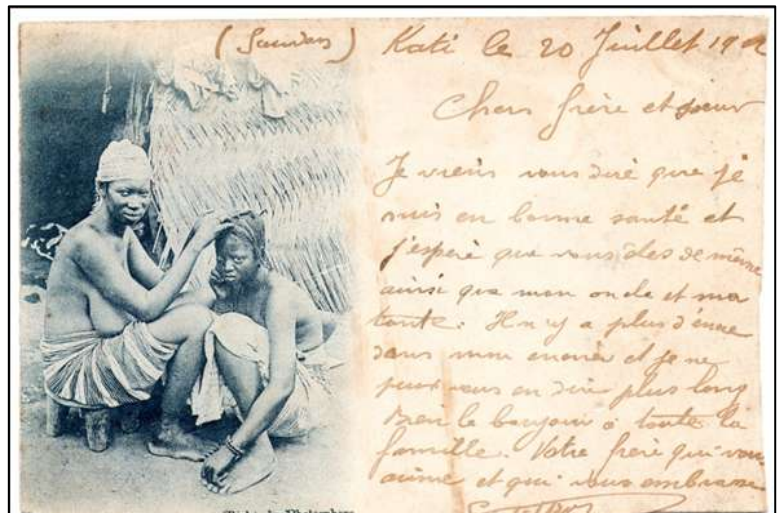 (Soudan) Kati le 20 Juillet 19
Chers frère et soeur
Je viens vous dire que je
suis en bonne santé et
j'espère que vous êtes de même
ainsi que mon oncle et ma
tante. Il n'y a plus d'encre
dans mon encrier et je ne
puis vous en dire plus long
bien le bonjour à toute la
famille. Votre frère qui vous
aime et qui vous embrasse